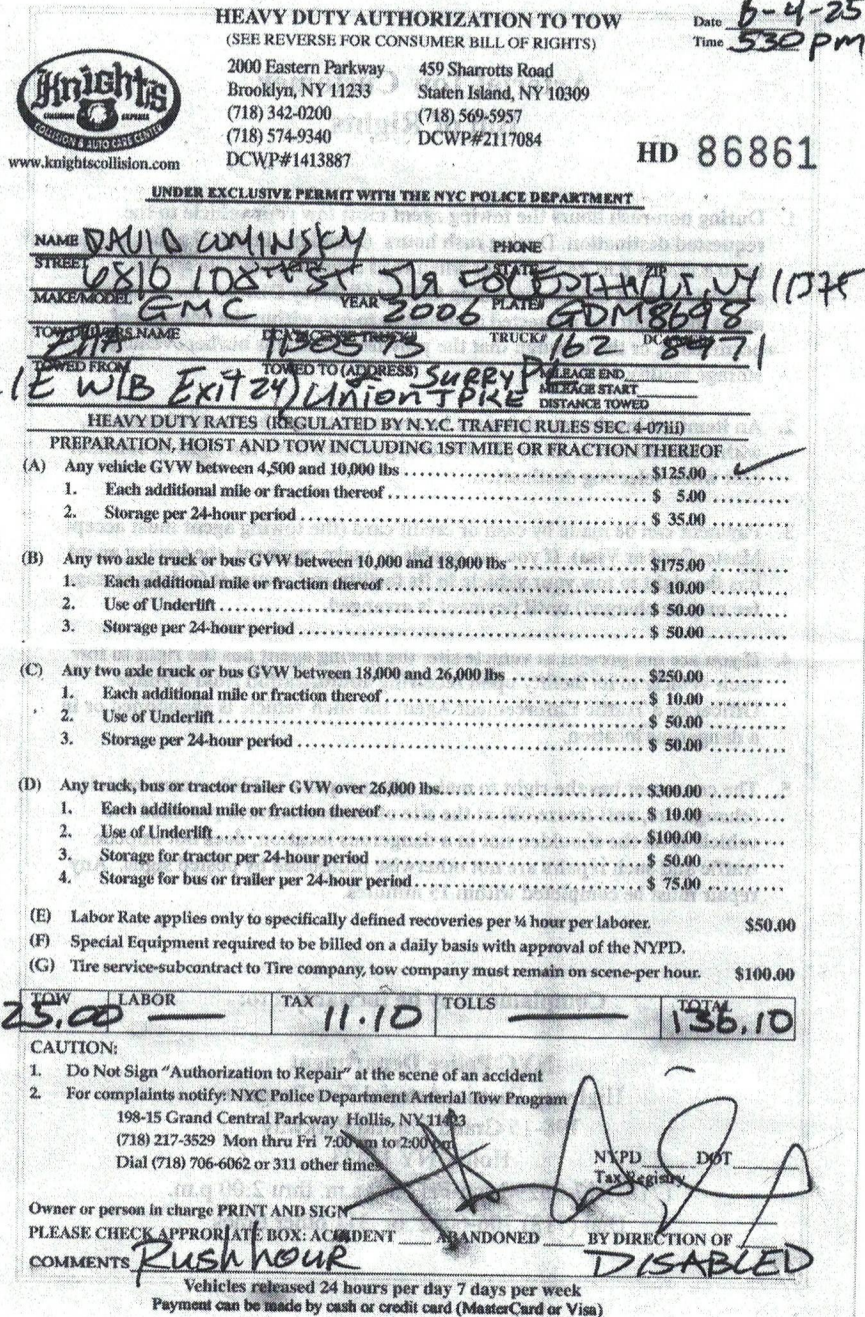 HEAVY DUTY AUTHORIZATION TO TOW
(SEE REVERSE FOR CONSUMER BILL OF RIGHTS)
Date 6-4-25
Time 530 pm
Knights
COLLISION EXPERTS
COLLISION & AUTO CARE CENTER
www.knightscollision.com
2000 Eastern Parkway
Brooklyn, NY 11233
(718) 342-0200
(718) 574-9340
DCWP#1413887
459 Sharrotts Road
Staten Island, NY 10309
(718) 569-5957
DCWP#2117084
HD 86861
UNDER EXCLUSIVE PERMIT WITH THE NYC POLICE DEPARTMENT
NAME DAVID LUMINSKY PHONE
STREET CITY STATE ZIP
6810 108th ST FOREST HILLS, NY 11375
MAKE/MODEL GMC YEAR 2006 PLATE# GDM8698
TOW DRIVERS NAME DCWP LICENSE TRUCK# TRUCK# 162 DCWP
TOWED FROM TOWED TO (ADDRESS) MILEAGE END
MILEAGE START
DISTANCE TOWED
W/B Exit 24) Union TPKE
HEAVY DUTY RATES (REGULATED BY N.Y.C. TRAFFIC RULES SEC 4-07iii)
PREPARATION, HOIST AND TOW INCLUDING 1ST MILE OR FRACTION THEREOF
(A) Any vehicle GVW between 4,500 and 10,000 lbs $125.00
1. Each additional mile or fraction thereof $ 5.00
2. Storage per 24-hour period $ 35.00
(B) Any two axle truck or bus GVW between 10,000 and 18,000 lbs $175.00
1. Each additional mile or fraction thereof $ 10.00
2. Use of Underlift $ 50.00
3. Storage per 24-hour period $ 50.00
(C) Any two axle truck or bus GVW between 18,000 and 26,000 lbs $250.00
1. Each additional mile or fraction thereof $ 10.00
2. Use of Underlift $ 50.00
3. Storage per 24-hour period $ 50.00
(D) Any truck, bus or tractor trailer GVW over 26,000 lbs. $300.00
1. Each additional mile or fraction thereof $ 10.00
2. Use of Underlift $100.00
3. Storage for tractor per 24-hour period $ 50.00
4. Storage for bus or trailer per 24-hour period $ 75.00
(E) Labor Rate applies only to specifically defined recoveries per ¼ hour per laborer. $50.00
(F) Special Equipment required to be billed on a daily basis with approval of the NYPD.
(G) Tire service-subcontract to Tire company, tow company must remain on scene-per hour. $100.00
TOW LABOR TAX TOLLS TOTAL
25.00 — 11.10 — 136.10
CAUTION:
1. Do Not Sign "Authorization to Repair" at the scene of an accident
2. For complaints notify: NYC Police Department Arterial Tow Program
198-15 Grand Central Parkway Hollis, NY 11423
(718) 217-3529 Mon thru Fri 7:00 am to 2:00 pm
Dial (718) 706-6062 or 311 other times
NYPD DOT
Tax Registry
Owner or person in charge PRINT AND SIGN
PLEASE CHECK APPRORIATE BOX: ACCIDENT ABANDONED BY DIRECTION OF
COMMENTS Rush hour DISABLED
Vehicles released 24 hours per day 7 days per week
Payment can be made by cash or credit card (MasterCard or Visa)